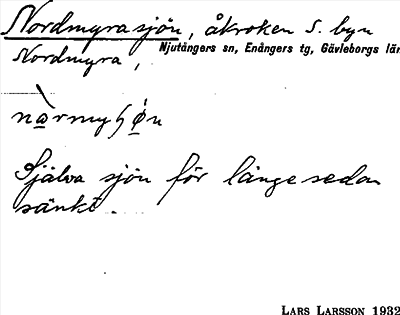 Nordmyrasjön, åkroken S. byn
Nordmyra, Njutångers sn, Enångers tg, Gävleborgs län
Själva sjön för länge sedan
sänkt.
LARS LARSSON 1932